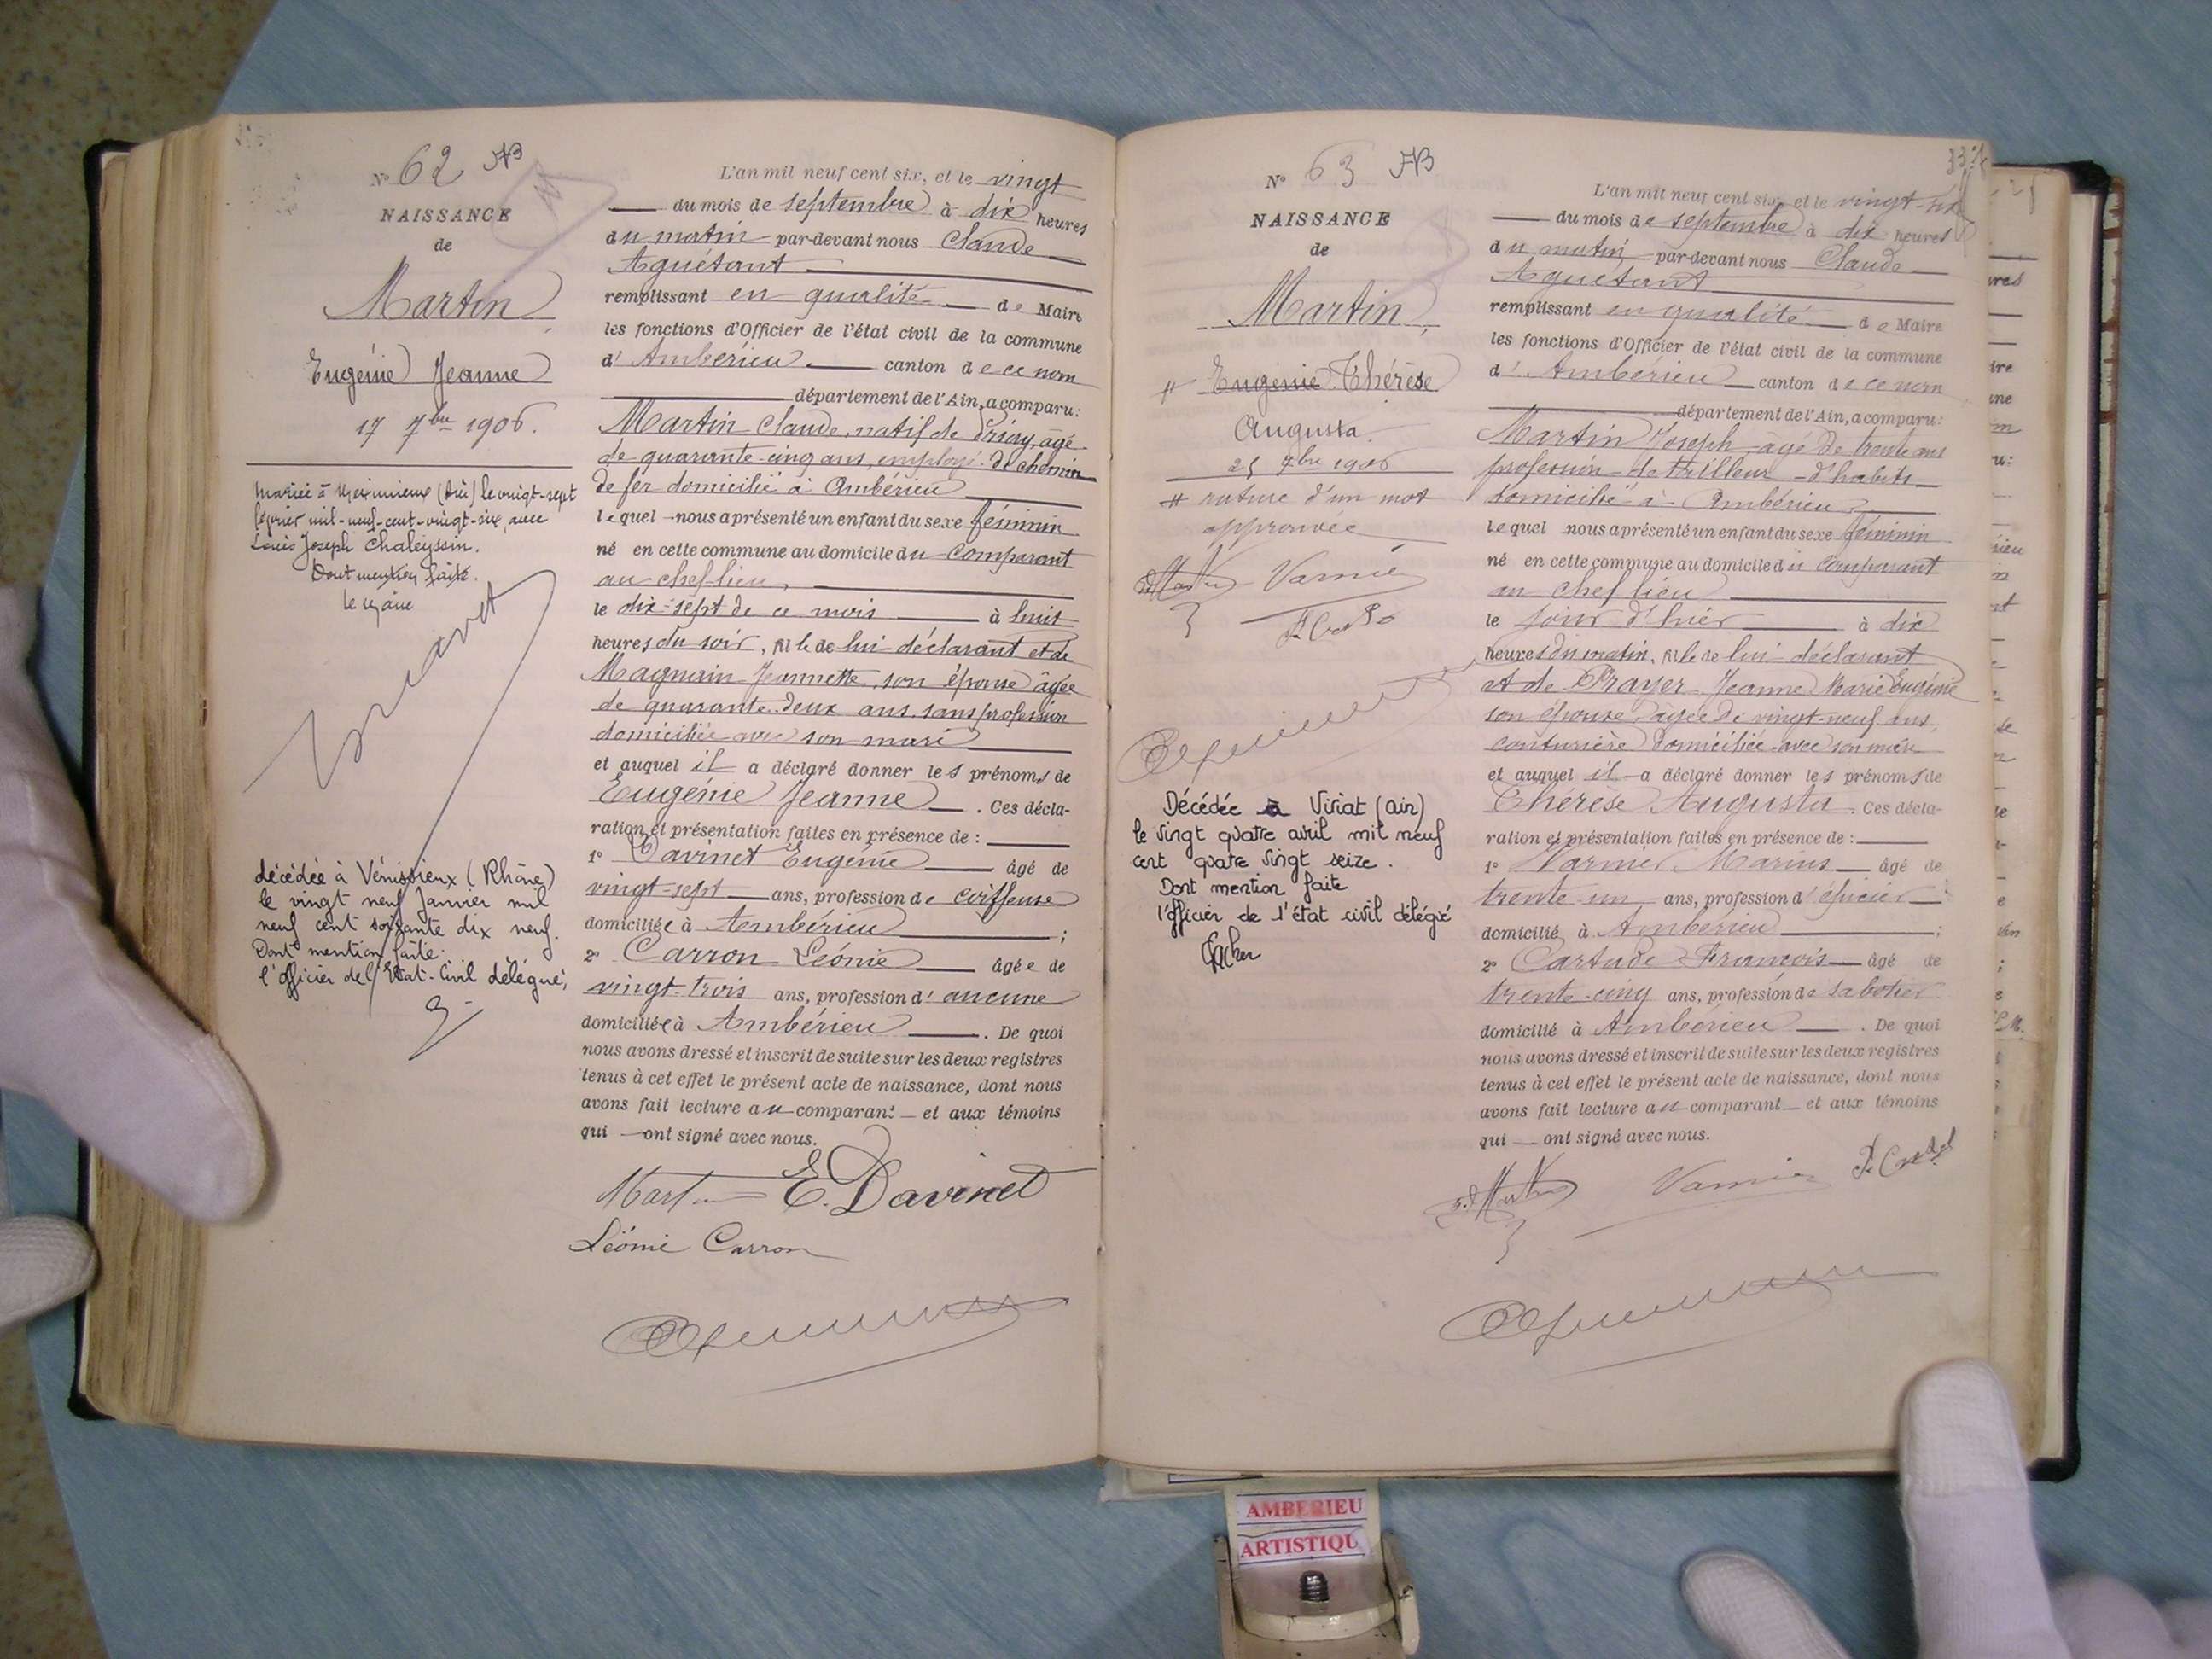 N° 62 AB
NAISSANCE
de
Martin
Eugénie Jeanne
17 7bre 1906.
mariée à Meximieux (Ain) le vingt-sept
février mil-neuf-cent-vingt-six, avec
Louis Joseph Chaleyssin.
Dont mention faite.
le maire
décédée à Vénissieux (Rhône)
le vingt neuf Janvier mil
neuf cent soixante dix neuf.
Dont mention faite.
l'officier de l'Etat-Civil délégué,
L'an mil neuf cent six, et le vingt
du mois de septembre à dix heures
du matin par-devant nous Claude
Aguétant
remplissant en qualité de Maire
les fonctions d'Officier de l'état civil de la commune
d' Ambérieu canton de ce nom
département de l'Ain, a comparu:
Martin Claude, natif de Priay, âgé
de quarante-cinq ans, employé de chemin
de fer domicilié à Ambérieu
lequel nous a présenté un enfant du sexe féminin
né en cette commune au domicile du comparant
au chef-lieu,
le dix-sept de ce mois à huit
heures du soir, fille de lui déclarant et de
Magnain Jeannette son épouse âgée
de quarante-deux ans, sans profession
domiciliée avec son mari
et auquel il a déclaré donner les prénoms de
Eugénie Jeanne. Ces décla-
ration et présentation faites en présence de :
1° Davinet Eugénie âgé de
vingt-sept ans, profession de coiffeuse
domiciliée à Ambérieu ;
2° Carron Léonie âgée de
vingt-trois ans, profession d'aucune
domiciliée à Ambérieu. De quoi
nous avons dressé et inscrit de suite sur les deux registres
tenus à cet effet le présent acte de naissance, dont nous
avons fait lecture au comparant et aux témoins
qui ont signé avec nous.
Martin E. Davinet
Léonie Carron
N° 63 AB
NAISSANCE
de
Martin
# Eugénie Thérèse
Augusta
25 7bre 1906
# rature d'un mot
approuvée
Décédée à Viriat (ain)
le vingt quatre avril mil neuf
cent quatre vingt seize.
Dont mention faite
l'officier de l'état civil délégué
L'an mil neuf cent six, et le vingt-six
du mois de septembre à dix heures
du matin, par-devant nous Claude
Aguétant
remplissant en qualité de Maire
les fonctions d'Officier de l'état civil de la commune
d' Ambérieu canton de ce nom
département de l'Ain, a comparu:
Martin Joseph âgé de trente ans
profession de tailleur d'habits
domicilié à Ambérieu,
lequel nous a présenté un enfant du sexe féminin
né en cette commune au domicile du comparant
au chef lieu
le jour d'hier à dix
heures du matin, fille de lui déclarant
et de Prayer Jeanne Marie Eugénie
son épouse, âgée de vingt-neuf ans,
couturière domiciliée avec son mari
et auquel il a déclaré donner les prénoms de
Thérèse Augusta. Ces décla-
ration et présentation faites en présence de :
1° Marius âgé de
trente-un ans, profession d'épicier
domicilié à Ambérieu ;
2° François âgé de
trente-cinq ans, profession de sabotier
domicilié à Ambérieu. De quoi
nous avons dressé et inscrit de suite sur les deux registres
tenus à cet effet le présent acte de naissance, dont nous
avons fait lecture au comparant et aux témoins
qui ont signé avec nous.
AMBERIEU
ARTISTIQU